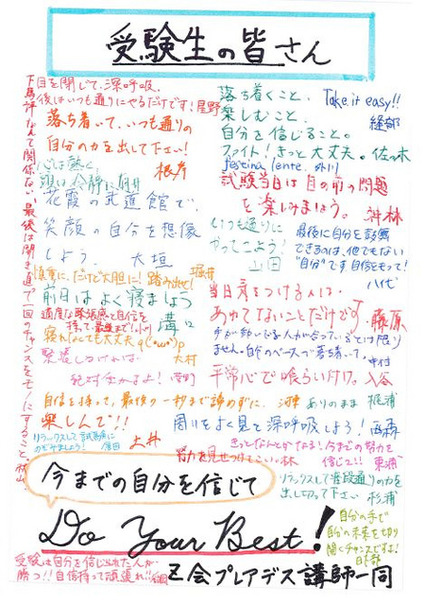 受験生の皆さん
目を閉じて、深呼吸。
後はいつも通りにやるだけです!尾野
落ち着いて、いつも通りの
自分の力を出して下さい!
根岸
心は熱く、
頭は冷静に
花霞の武道館で、
笑顔の自分を想像
しよう。大垣
慎重に、だけど大胆に!踏み出せ!堀井
前日はよく寝ましょう
適度な緊張感と自信を
持って、最後まで!
溝口
寝れなくても大丈夫
大村
緊張しなければ
絶対受かるよ!
自信を持って、最後の一秒まで諦めずに。
楽しんで!!
土井
リラックスして試験に
下馬評なんて関係ない。最後は開き直って一回のチャンスをモノにすること
落ち着くこと、
楽しむこと、
自分を信じること。
ファイト!きっと大丈夫。佐々木
Take it easy!!
festina lente.
試験当日は目の前の問題
を楽しみましょう。
いつも通りに
やってこよう!
山田
最後に自分を鼓舞
できるのは、他でもない
"自分"です。自信をもって!
八代
当日差をつける人は、
あわてないことだけです
藤原
手が動いている人が合っているとは限り
ません。自分のペースで落ち着いて。
中村
平常心で喰らい付け。入谷
ありのまま 梶浦
周りをよく見て深呼吸しよう!
きっとなんとかなる!今までの努力を
信じて!! 東浦
努力を見せつけてこい。林
リラックスして普段通りの力を
出し切って下さい 杉浦
自分の手で
自分の未来を切り
開くチャンスですよ!
今までの自分を信じて
Do Your Best!
受験は自分を信じ出た人が
勝つ!!自信持って頑張れ!!
Z会プレアデス講師一同